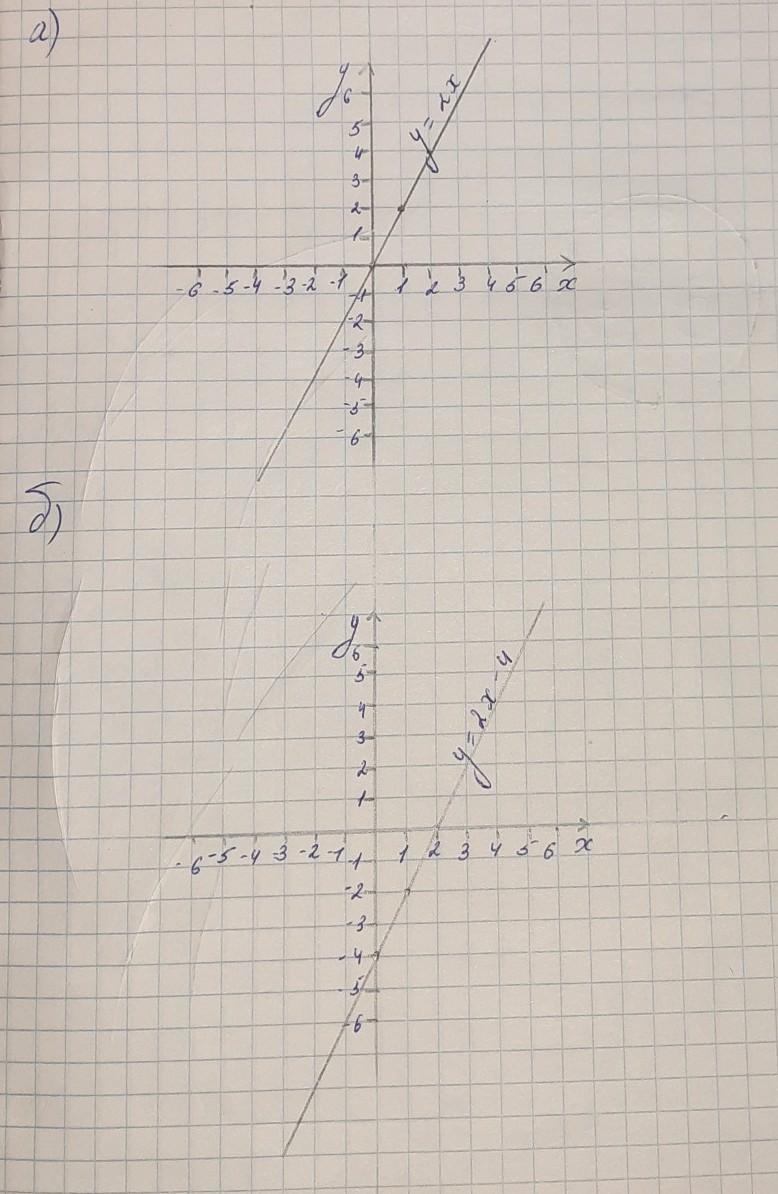 а)
y
6
y = 2x
5
4
3
2
1
-6 -5 -4 -3 -2 -1 1 2 3 4 5 6 x
-1
-2
-3
-4
-5
-6
б)
y
6
5
y = 2x - 4
4
3
2
1
-6 -5 -4 -3 -2 -1 1 2 3 4 5 6 x
-1
-2
-3
-4
-5
-6